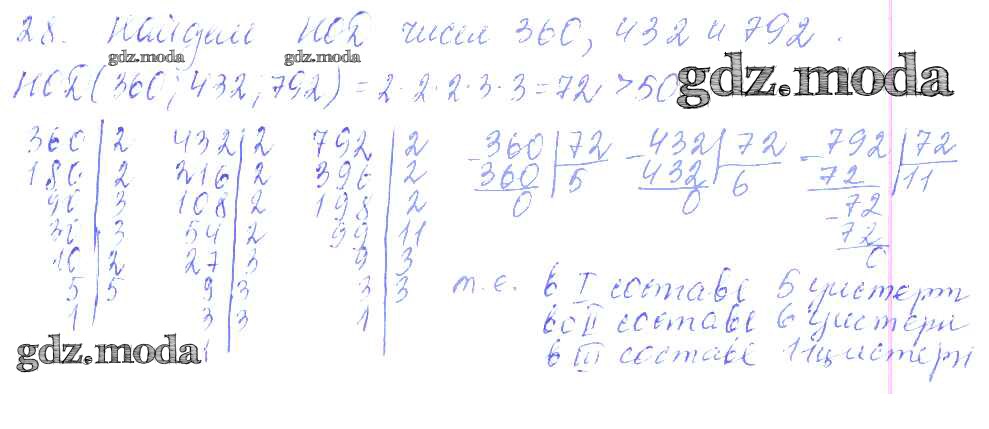 28. Найдем НОД чисел 360, 432 и 792.
gdz.moda gdz.moda
gdz.moda
НОД(360; 432; 792) = 2·2·2·3·3 = 72 > 50
360 | 2 432 | 2 792 | 2
180 | 2 216 | 2 396 | 2
90 | 3 108 | 2 198 | 2
30 | 3 54 | 2 99 | 11
10 | 2 27 | 3 9 | 3
5 | 5 9 | 3 3 | 3
1 3 | 3 1
1
-360 | 72 -432 | 72 -792 | 72
360 5 432 6 72 11
0 0 -72
72
0
т.е. в I составе 5 цистерн
во II составе 6 цистерн
в III составе 11 цистерн
gdz.moda